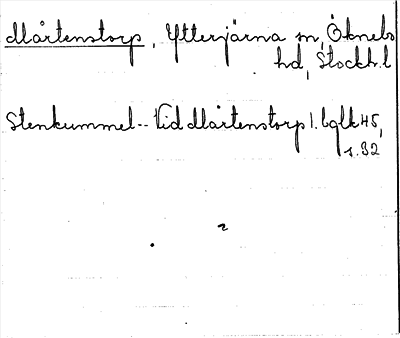 Mårtenstorp, Ytterjärna sn, Öknebo
hd, Stockh.l
Stenkummel-- Vid Mårtenstorp l. bglk H5,
s. 32